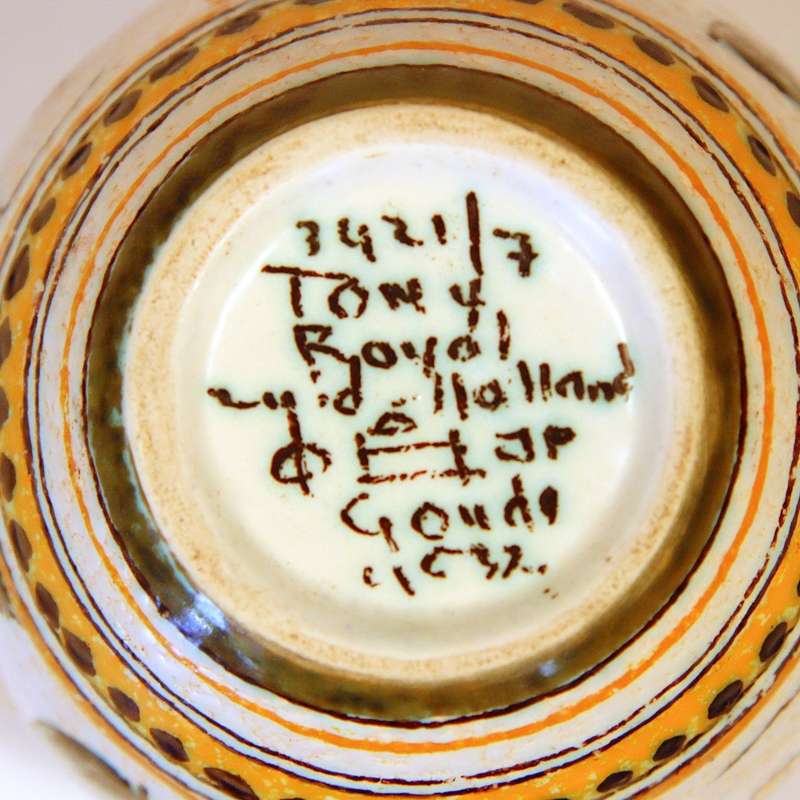 3421/7
Tony
Royal
Zuid Holland
JP
Gouda